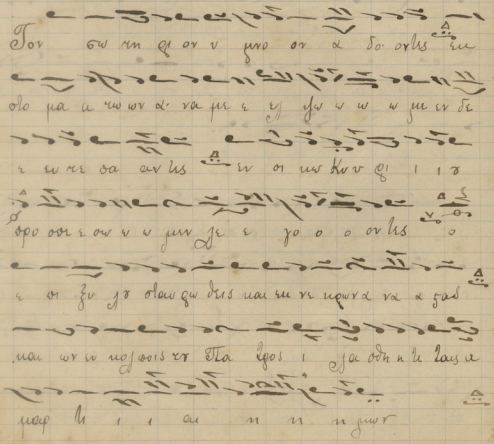 Τον σω τη ρι ον υ μνο ον α δο οντες εκ
στο μα α τω ων α να με ε ελ ψω ω ω ω μεν δε
ε ευ τε πα αν τες εν οι κω Κυ υ ρι ι ι ου
προ σπε ε σω ε ω μεν λε ε γο ο ο οντες ο
ε πι ξυ λου σταυ ρω θεις και εκ νε κρων α να α στας
και ων εν κολποις του Πα τρος ι λα σθη η τι ταις α
μαρ τι ι ι αι η η η μων